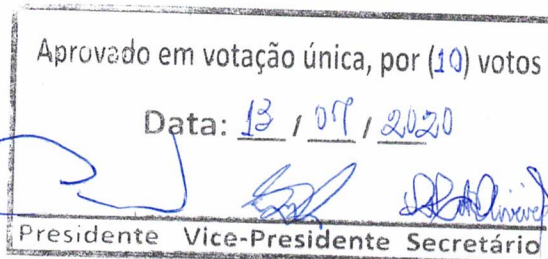 Aprovado em votação única, por (10) votos
Data: 13 / 07 / 2020
Presidente Vice-Presidente Secretário